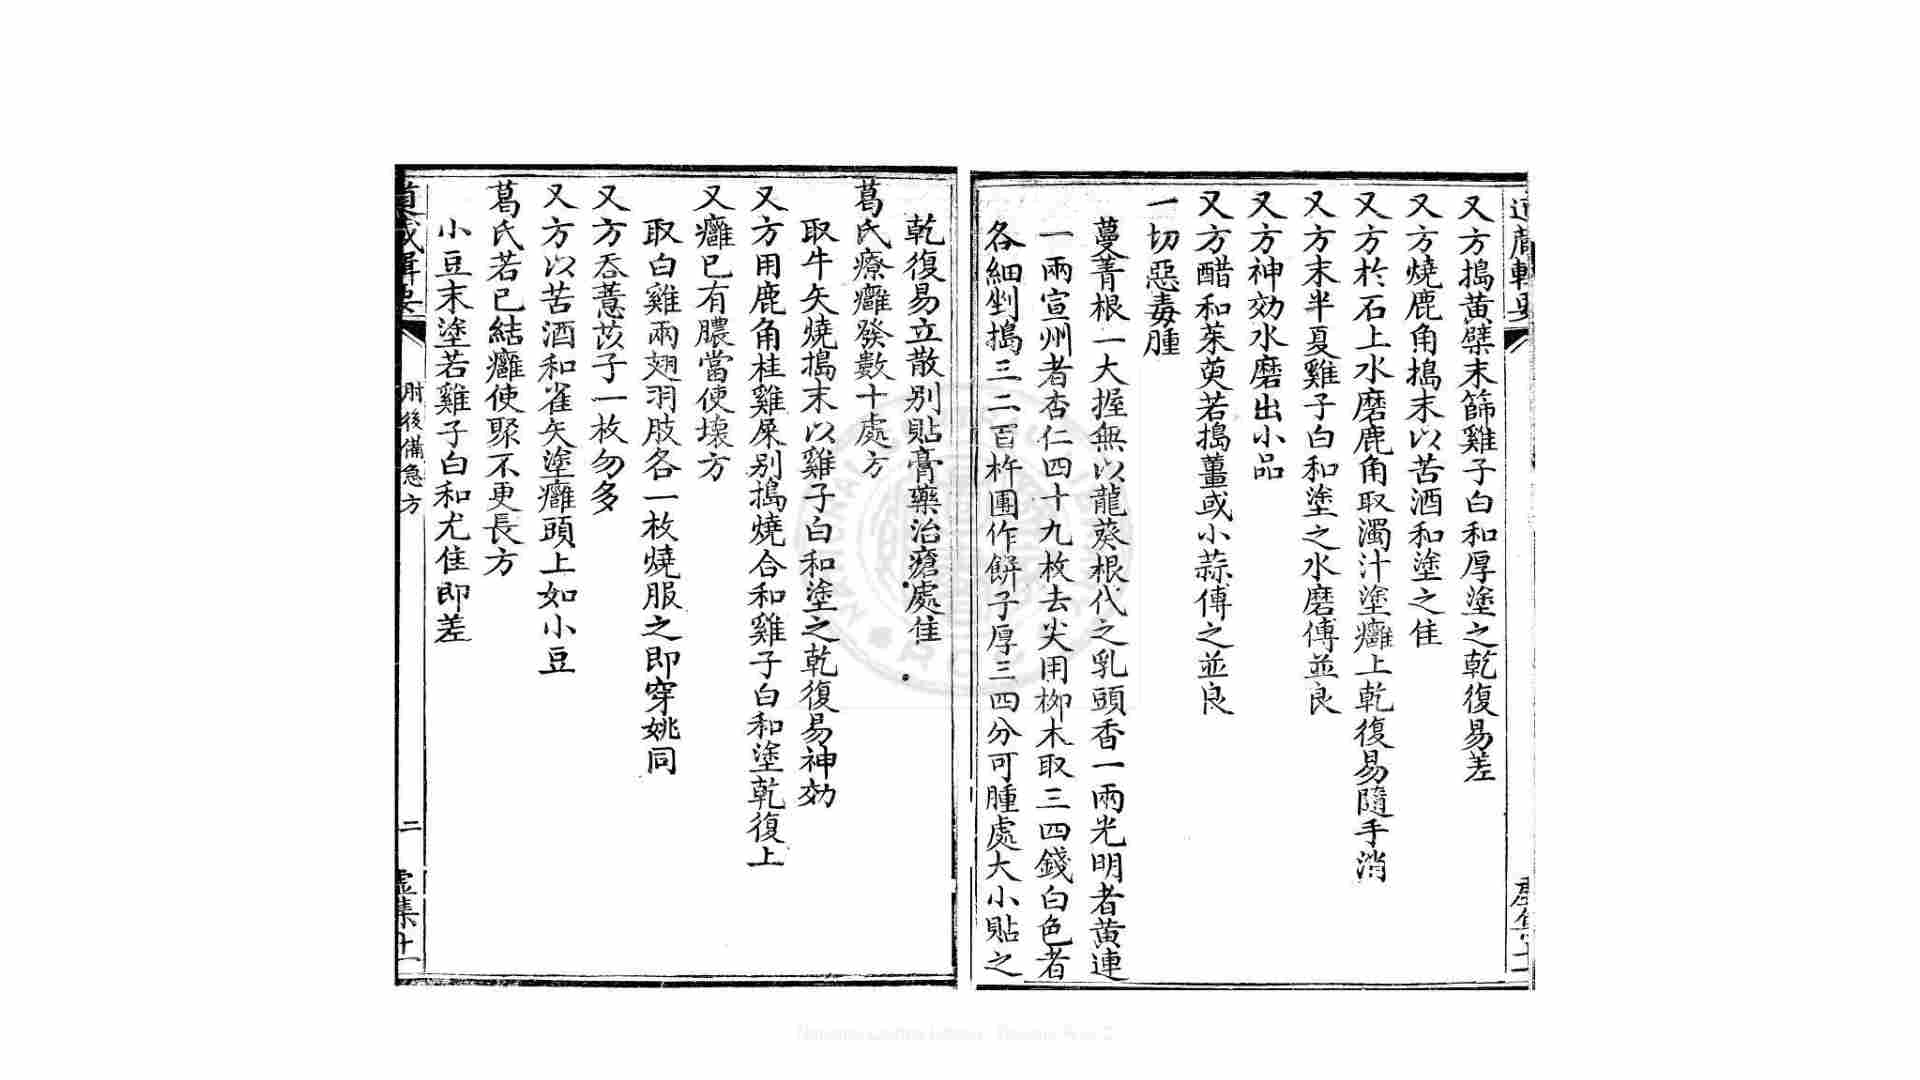 又方搗黃檗末篩雞子白和厚塗之乾復易差
又方燒鹿角搗末以苦酒和塗之佳
又方於石上水磨鹿角取濁汁塗癰上乾復易隨手消
又方末半夏雞子白和塗之水磨傅並良
又方神効水磨出小品
又方醋和茱萸若搗薑或小蒜傅之並良
一切惡毒腫
蔓菁根一大握無以龍葵根代之乳頭香一兩光明者黃連
一兩宣州者杏仁四十九枚去尖用柳木取三四錢白色者
各細剉搗三二百杵團作餅子厚三四分可腫處大小貼之
乾復易立散別貼膏藥治瘡處佳
葛氏療癰發數十處方
取牛矢燒搗末以雞子白和塗之乾復易神効
又方用鹿角桂雞屎別搗燒合和雞子白和塗乾復上
又癰已有膿當使壞方
取白雞兩翅羽肢各一枚燒服之即穿姚同
又方吞薏苡子一枚勿多
又方以苦酒和雀矢塗癰頭上如小豆
葛氏若已結癰使聚不更長方
小豆末塗若雞子白和尤佳即差
道藏輯要
肘後備急方
二
虛集十一